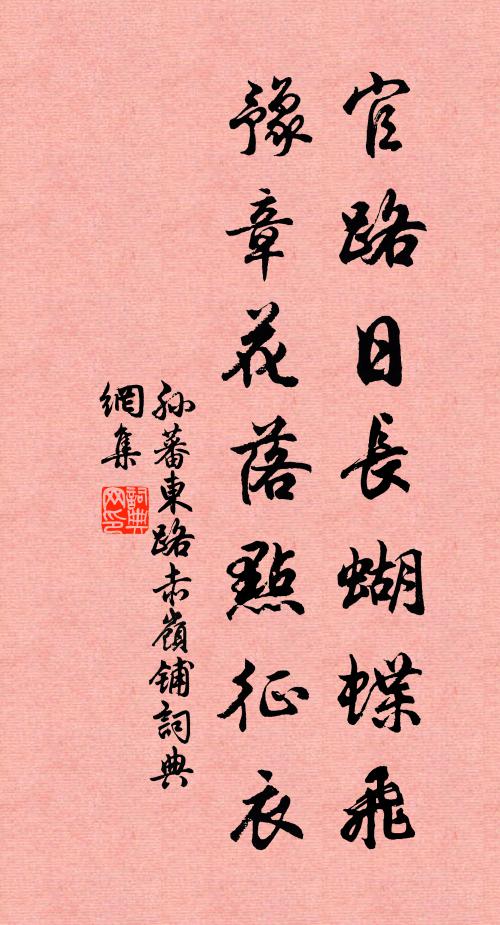 官路日長蝴蝶飛
豫章花落點征衣
孫蕃東路赤嶺鋪詞典
網集
詞典
网印